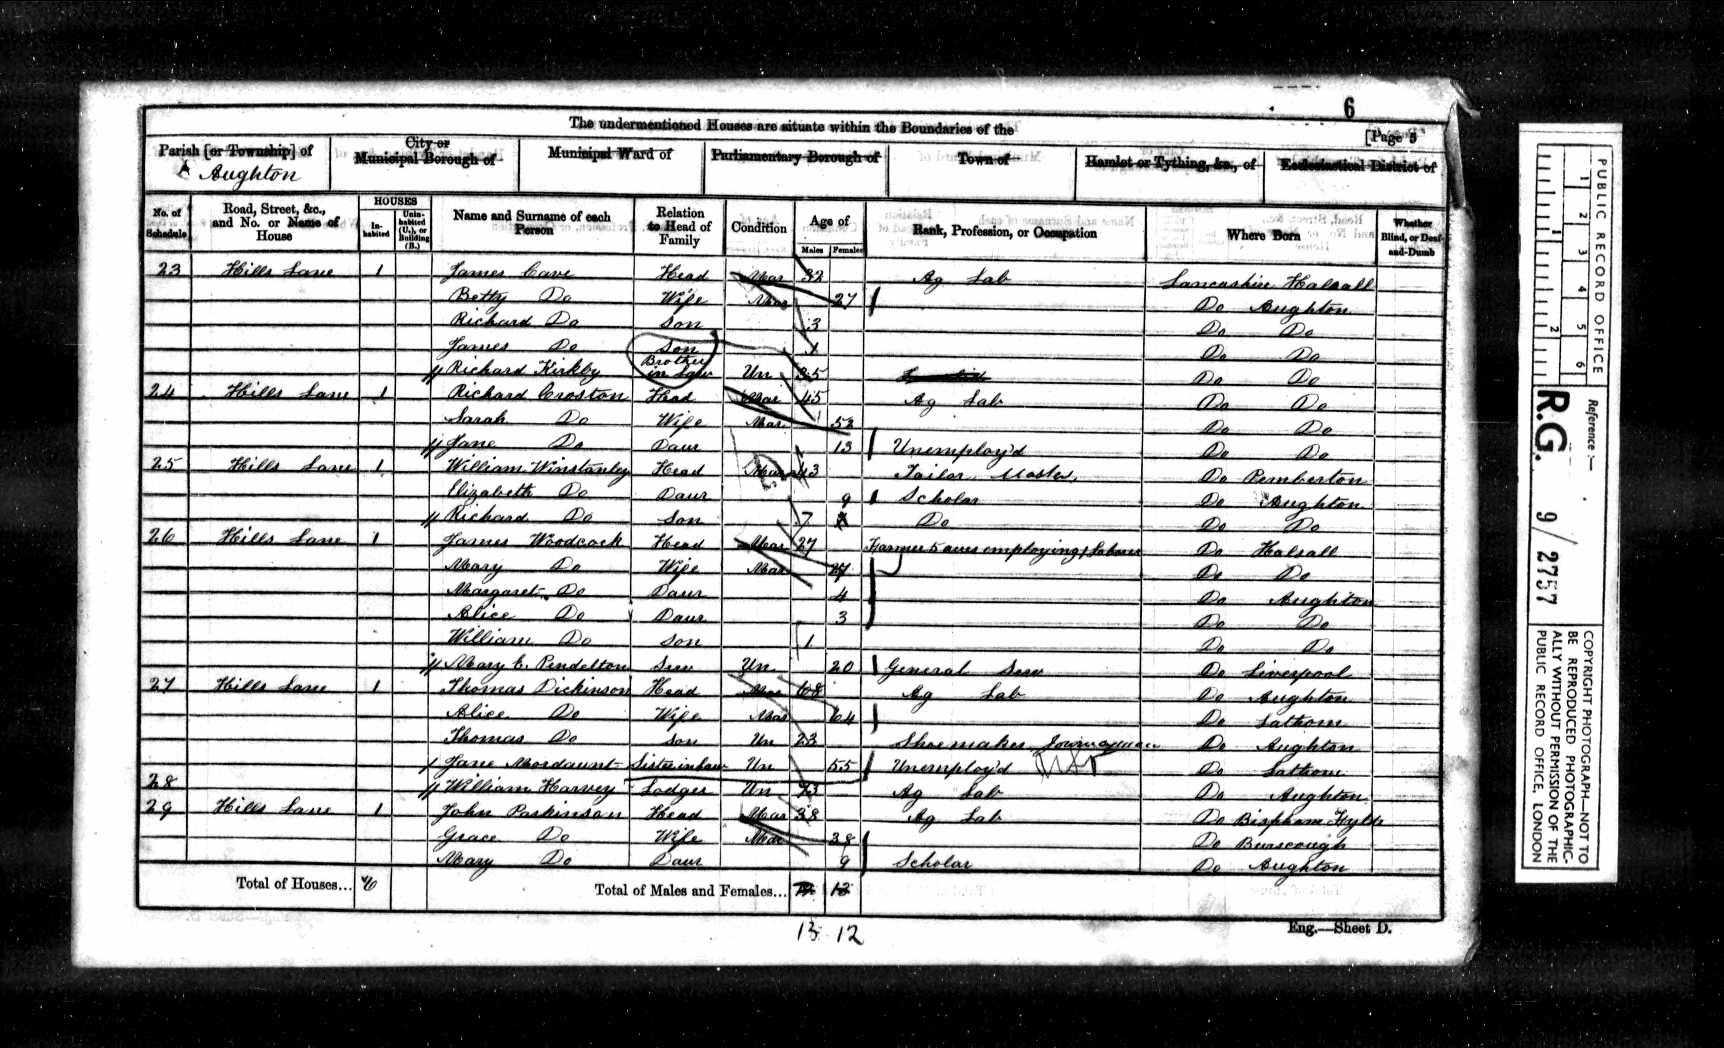 6
The undermentioned Houses are situate within the Boundaries of the
[Page 5
Parish [or Township] of
Aughton
City or Municipal Borough of
Municipal Ward of
Parliamentary Borough of
Town of
Hamlet or Tything, &c., of
Ecclesiastical District of
No. of Schedule
Road, Street, &c., and No. or Name of House
HOUSES
Inhabited
Uninhabited (U.), or Building (B.)
Name and Surname of each Person
Relation to Head of Family
Condition
Age of
Males
Females
Rank, Profession, or Occupation
Where Born
Whether Blind, or Deaf-and-Dumb
23 Hills Lane 1 James Cave Head Mar 32 Ag Lab Lancashire Halsall
Betty Do Wife Mar 27 Do Aughton
Richard Do Son 3 Do Do
James Do Son Do Do
Richard Kirkby Brother in Law Un 35 Do Do
24 Hills Lane 1 Richard Croston Head Mar 45 Ag Lab Do Do
Sarah Do Wife Mar 52 Do Do
Jane Do Daur 13 Unemploy'd Do Do
25 Hills Lane 1 William Winstanley Head 43 Tailor Master Do Pemberton
Elizabeth Do Daur 9 Scholar Do Aughton
Richard Do Son 7 Do Do Do
26 Hills Lane 1 James Woodcock Head Mar 27 Farmer 5 acres employing 1 Labourer Do Halsall
Mary Do Wife Mar 27 Do Do
Margaret Do Daur 4 Do Aughton
Alice Do Daur 3 Do Do
William Do Son 1 Do Do
Mary E. Pendelton Serv Un 20 General Serv Do Liverpool
27 Hills Lane 1 Thomas Dickinson Head Mar 68 Ag Lab Do Aughton
Alice Do Wife Mar 64 Do Lathom
Thomas Do Son Un 23 Shoemaker Journeyman Do Aughton
Jane Mordaunt Sister in Law Un 55 Unemploy'd Do Lathom
28 William Harvey Lodger Un 73 Ag Lab Do Aughton
29 Hills Lane 1 John Parkinson Head Mar 38 Ag Lab Do Bispham Fylde
Grace Do Wife Mar 38 Do Burscough
Mary Do Daur 9 Scholar Do Aughton
Total of Houses... 6
Total of Males and Females... 12 12
13 12
Eng.—Sheet D.
PUBLIC RECORD OFFICE
1 2 3 4 5 6
1 2
Reference :—
R.G. 9/2757
COPYRIGHT PHOTOGRAPH—NOT TO BE REPRODUCED PHOTOGRAPHICALLY WITHOUT PERMISSION OF THE PUBLIC RECORD OFFICE, LONDON